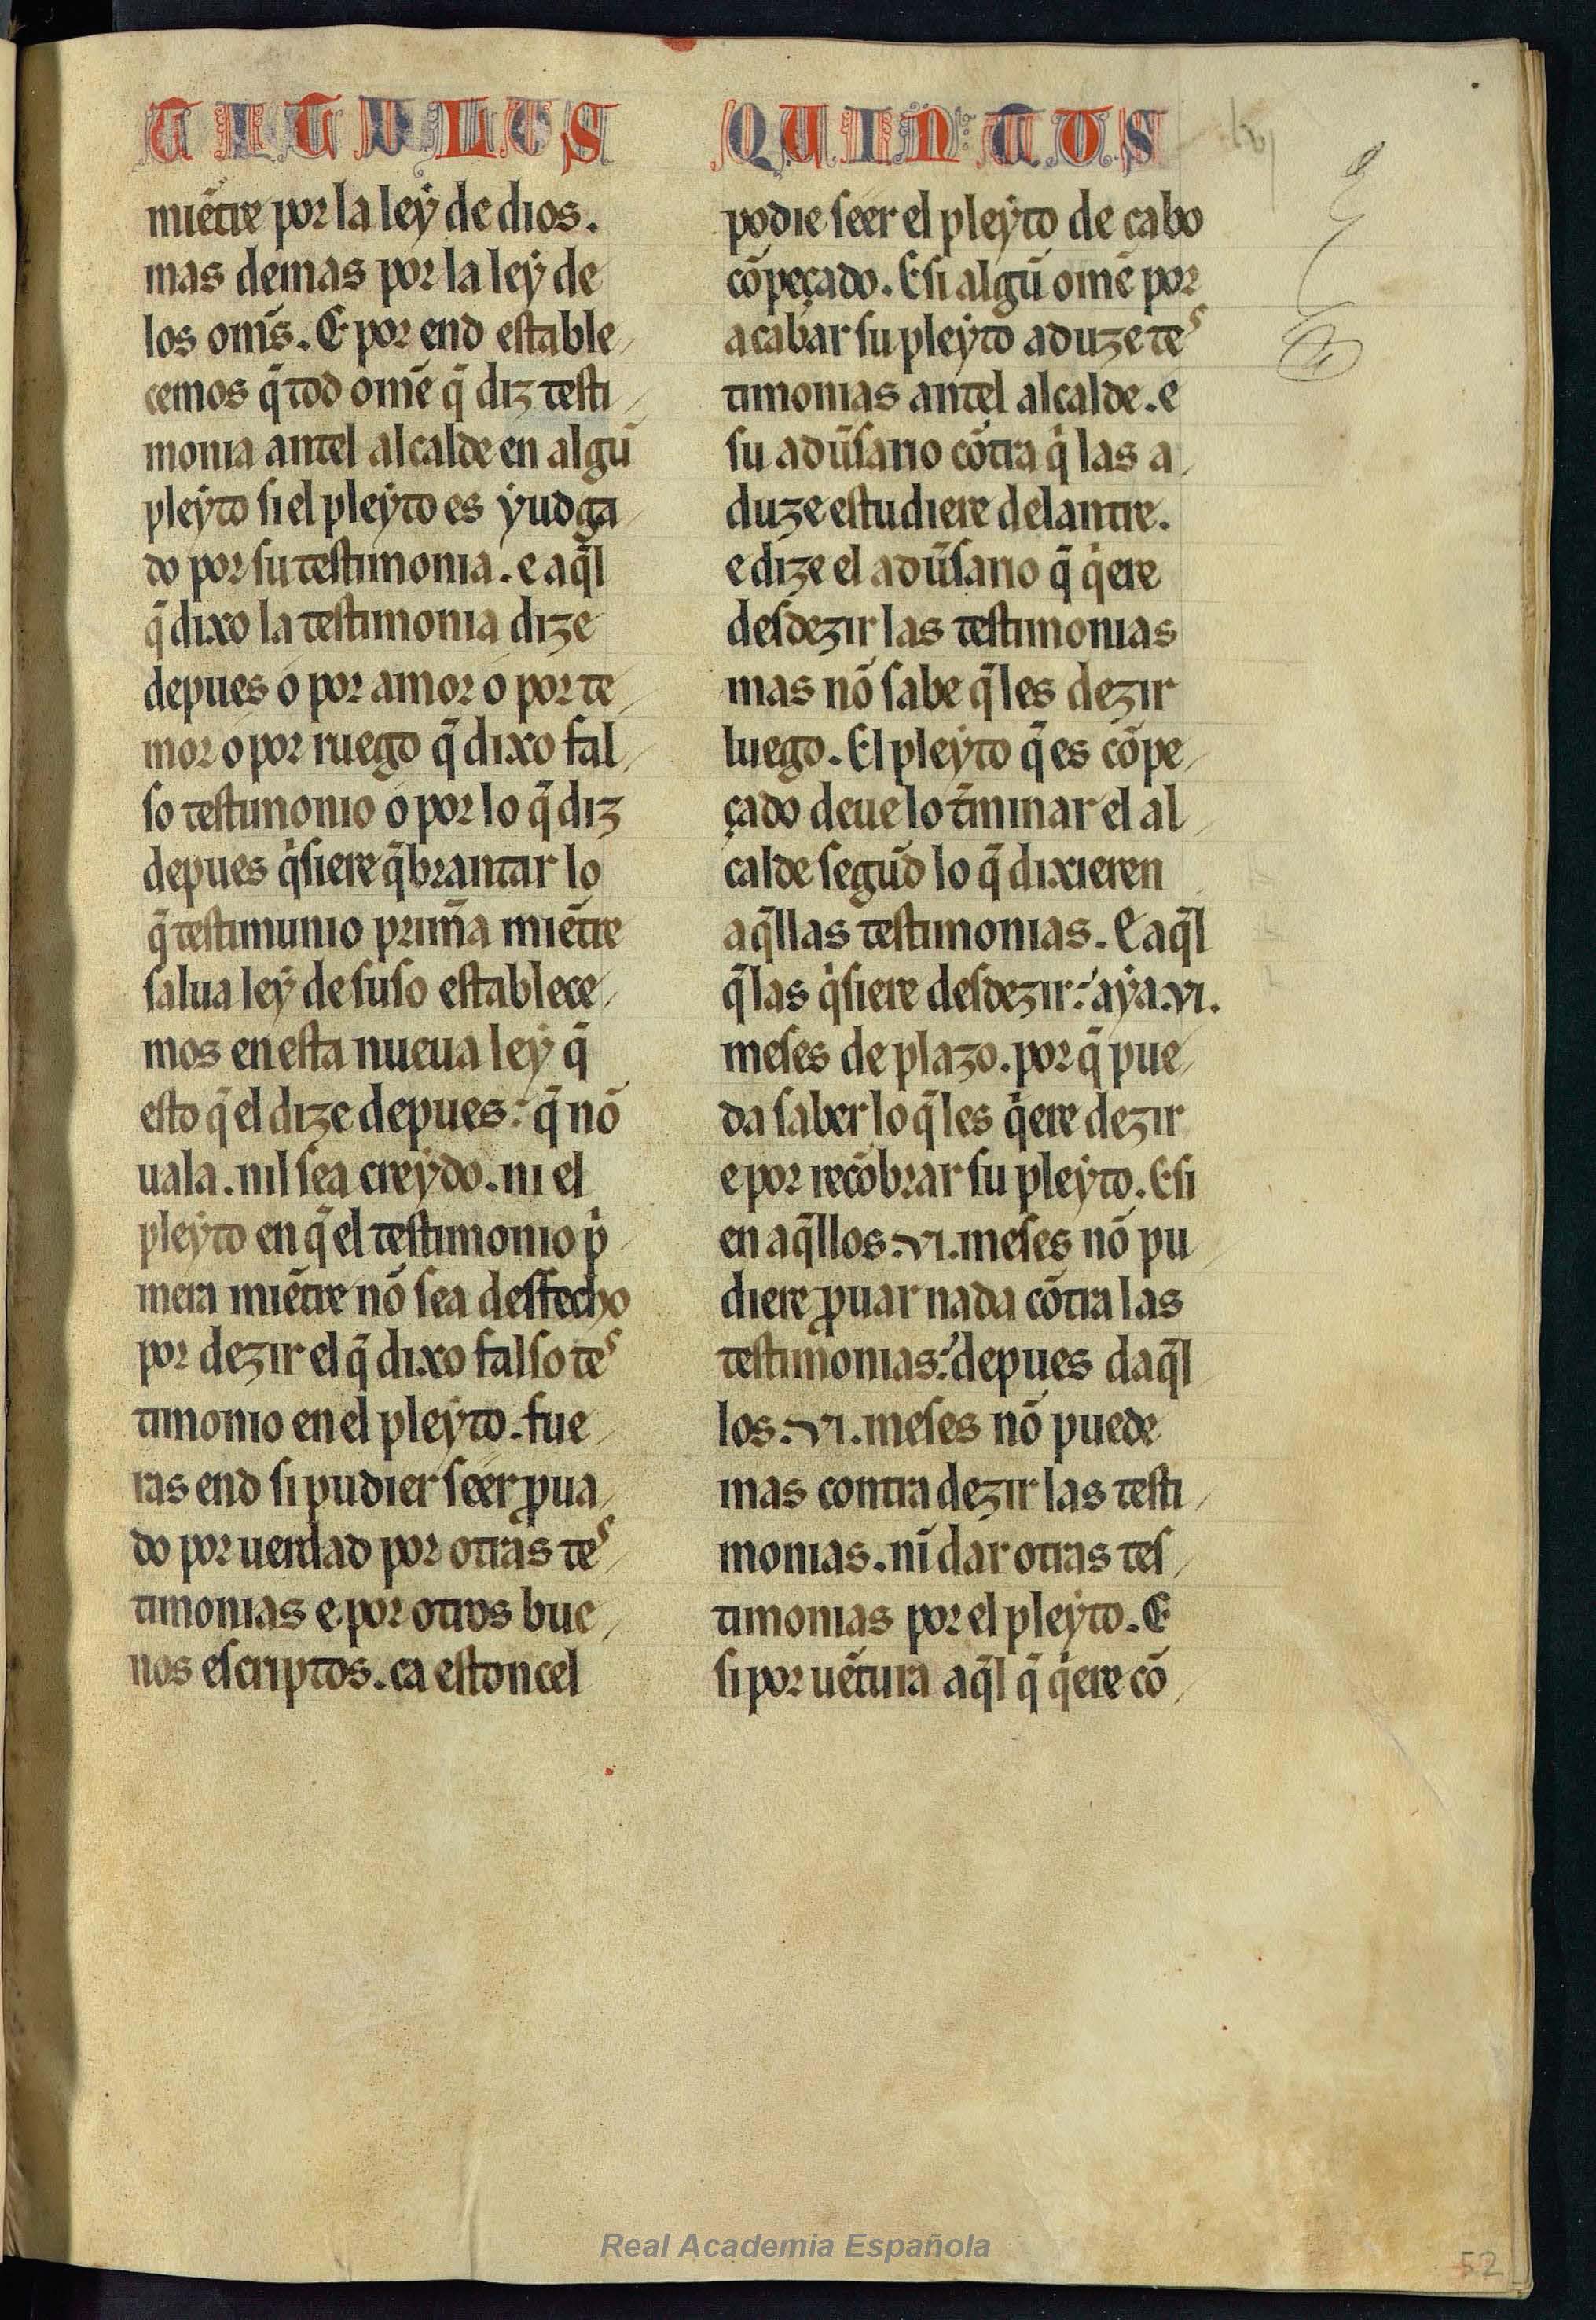 TITULUS
miẽtre por la ley de dios.
mas demas por la ley de
los om̃s. E por end estable
cemos q̃ tod omẽ q̃ diz testi
monia antel alcalde en algũ
pleyto si el pleyto es yudga
do por su testimonia. e aq̃l
q̃ dixo la testimonia dize
depues o por amor o por te
mor o por ruego q̃ dixo fal
so testimonio o por lo q̃ diz
depues q̇siere q̃brantar lo
q̃ testimunio prim̃a miẽtre
salua ley de suso establece
mos en esta nueua ley q̃
esto q̃ el dize depues: q̃ nõ
uala. nil sea creydo. ni el
pleyto en q̃ el testimonio ṗ
mera miẽtre nõ sea desfecho
por dezir el q̃ dixo falso tes
timonio en el pleyto. fue
ras end si pudier seer ꝓua
do por uerdad por otras tes
timonias e por otros bue
nos escriptos. ca estoncel
QUINTUS
podie seer el pleyto de cabo
cõpeçado. E si algũ omẽ por
acabar su pleyto aduze tes
timonias antel alcalde. e
su adũsario cõtra q̇ las a
duze estudiere delantre.
e dize el adũsario q̃ q̇ere
desdezir las testimonias
mas nõ sabe q̃ les dezir
luego. El pleyto q̃ es cõpe
çado deue lo t̃minar el al
calde segũd lo q̃ dixieren
aq̃llas testimonias. E aq̃l
q̃ las q̇siere desdezir: aya .vi.
meses de plazo. por q̃ pue
da saber lo q̃ les q̇ere dezir
e por recõbrar su pleyto. E si
en aq̃llos .vi. meses nõ pu
diere ꝓuar nada cõtra las
testimonias: depues daq̃l
los .vi. meses nõ puede
mas contra dezir las testi
monias. nĩ dar otras tes
timonias por el pleyto. E
si por uẽtura aq̃l q̃ q̇ere cõ
Real Academia Española
52